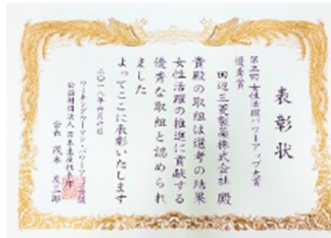 表彰状
第三回女性活躍パワーアップ大賞
優秀賞
田辺三菱製薬株式会社 殿
貴殿の取組は選考の結果
女性活躍の推進に貢献する
優秀な取組と認められ
ました
よってここに表彰いたします
二〇一八年四月六日
ワーキングウーマン・パワーアップ会議
公益財団法人 日本生産性本部
会長 茂木 友三郎